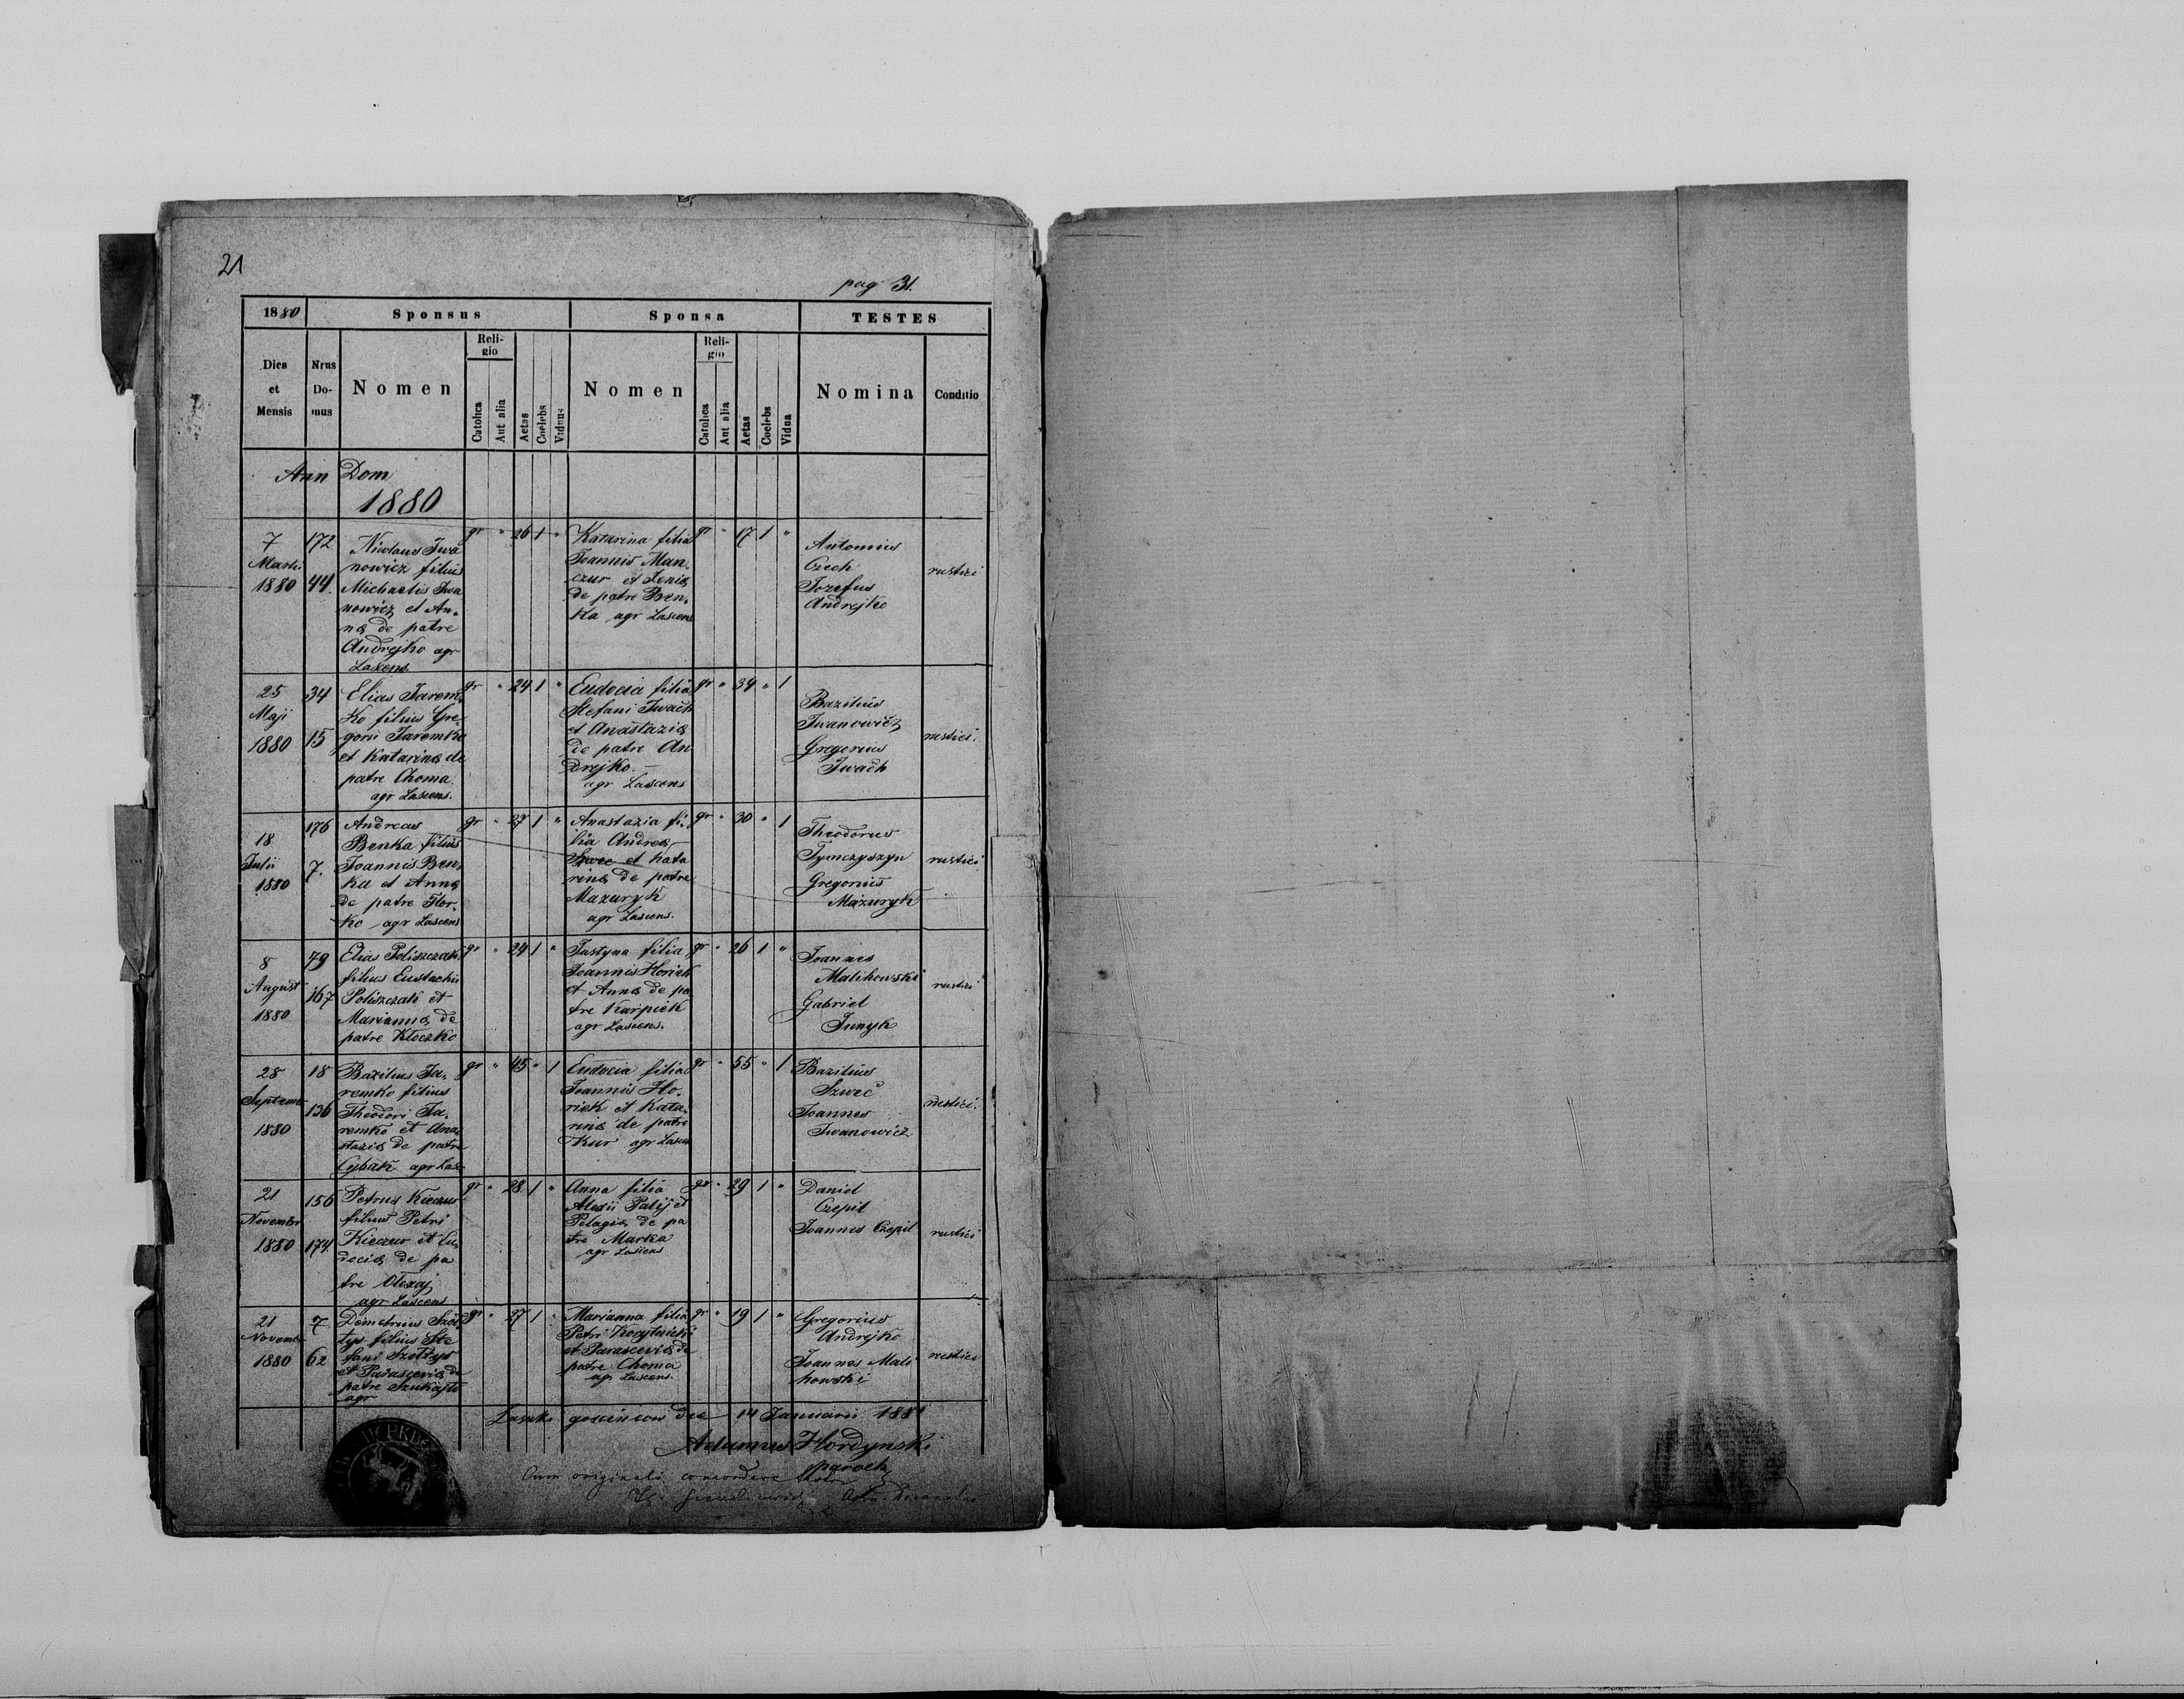 21
pag 31.
1880 Sponsus Sponsa TESTES
Dies et Mensis Nrus Domus Nomen Religio Catolica Aut alia Aetas Coelebs Viduus Nomen Religio Catolica Aut alia Aetas Coelebs Vidua Nomina Conditio
Ann Dom
1880
7
Martii
1880
172
44.
Nicolaus Iwa
nowicz filius
Michaelis Iwa
nowicz et An-
nae de patre
Andrejko agr
Lascens
gr " 26 1 "
Katarina filia
Joannis Man-
czur et Xeniae
de patre Ben-
ka agr Lascens
gr " 17 1 "
Antonius
Czech
Jozefus
Andrejko
rustici
25
Maji
1880
34
15
Elias Jarem-
ko filius Gre-
gorii Jaremko
et Katarinae de
patre Choma
agr Lascens.
gr " 24 1 "
Eudocia filia
Stefani Iwach
et Anastaziae
de patre An
drejko. —
agr Lascens
gr " 34 " 1
Bazilius
Iwanowicz
Gregorius
Iwach
rustici.
18
Julii
1880
176
7.
Andreas
Benka filius
Joannis Ben-
ka et Annae
de patre Hor-
ko agr Lascens
gr " 27 1 "
Anastazia fi-
lia Andreae
Szwec et Kata
rinae de patre
Mazuryk
agr Lascens.
gr " 30 " 1
Theodorus
Tymczyszyn
Gregorius
Mazuryk
rustici
8
August
1880
79
167
Elias Poliszczak
filius Eustachii
Poliszczak et
Mariannae de
patre Kloczko
gr " 24 1 "
Justyna filia
Joannis Horich
et Annae de pa
tre Karpiek
agr Lascens.
gr " 26 1 "
Joannes
Malihowski
Gabriel
Junyk
rustici
28
Septemb
1880
18
136
Bazilius Ja-
remko filius
Theodori Ja-
remko et Ana
staziae de patre
Cybak agr Lasc
gr " 45 " 1
Eudocia filia
Joannis Ho-
rich et Kata-
rinae de patre
Kur agr Lascen
gr " 55 " 1
Bazilius
Szwec
Joannes
Iwanowicz
rustici.
21
Novembr
1880
156
174
Petrus Kieczur
filius Petri
Kieczur et Eu-
dociae de pa
tre Olexaj
agr Lascens
gr " 28 1 "
Anna filia
Alexii Palij et
Pelagiae de pa
tre Marka
agr Lascens
gr " 29 1 "
Daniel
Czepil
Joannes Czepil
rustici
21
Novembr
1880
7
62
Demetrius Szol
tys filius Ste
fani Szoltys
et Parasceviae de
patre
agr
gr " 27 1 "
Marianna filia
Petri Korytnicki
et Parasceviae de
patre Choma
agr Lascens.
gr " 19 1 "
Gregorius
Andrejko
Joannes Mali
howski
rustici
Laszki goscincow die 14 Januarii 1881
Adamus Hordynski
parochus
Cum originali concordare